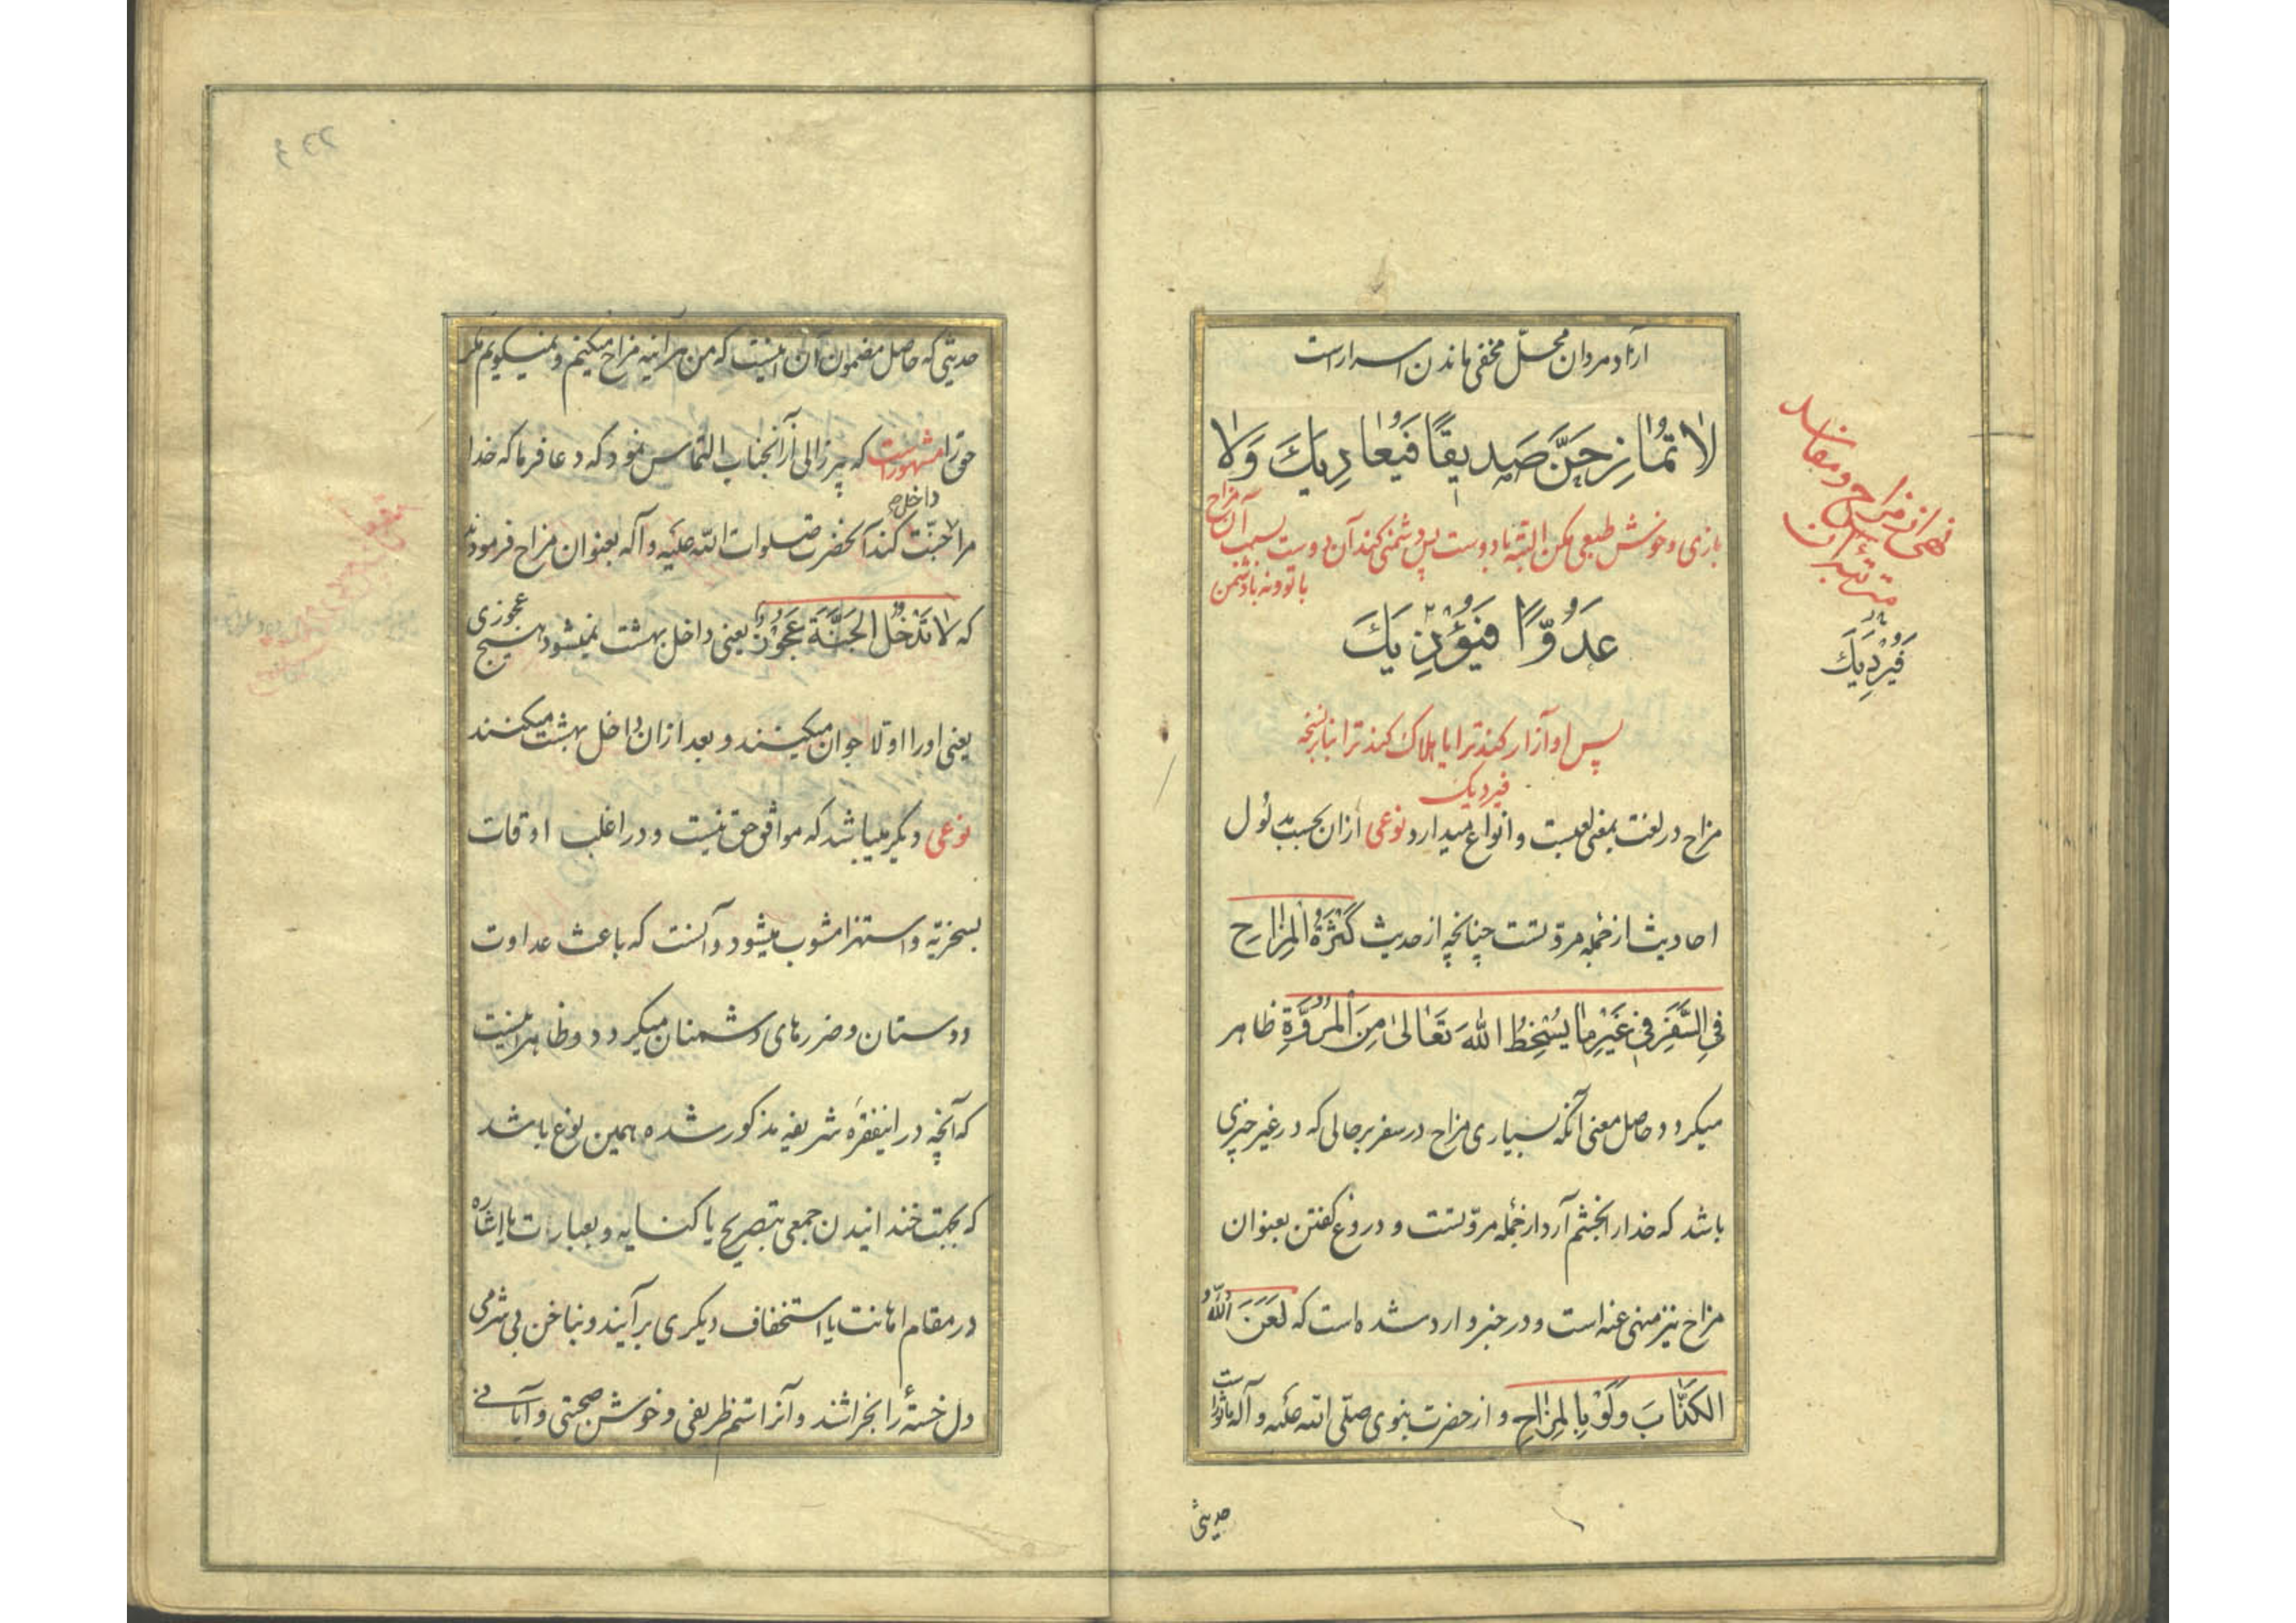 آزاد مردان محلّ مخفی ماندن اسرار است
لا تُمازِحَنَّ صَدیقًا فَیُعادِیكَ وَلا
بازی و خوش طبعی مکن البتّه با دوست پس دشمنی کند آن دوست بسبب آن مزاح
با تو و نه با دشمن
عَدُوًّا فَیُؤْذِیكَ
پس او آزار کند ترا یا هلاک کند ترا بنا بر نسخه
فیردیک
مزاح در لغت بمعنی لعبست و انواع میدارد نوعی ازان بحسب مدلول
احادیث از جمله مروّتست چنانچه از حدیث کَثْرَةُ الْمِزاحِ
فِی السَّفَرِ فی غَیْرِ ما یُسْخِطُ اللهَ تَعالیٰ مِنَ الْمُرُوَّةِ ظاهر
میکردد و حاصل معنی آنکه بسیاری مزاح در سفر بر حالی که در غیر چیزی
باشد که خدا را بخشم آرد از جمله مروّتست و دروغ کفتن بعنوان
مزاح نیز منهی عنه است و در خبر وارد شده است که لَعَنَ اللهُ
الکَذّابَ وَلَوْ بِالمِزاحِ و از حضرت نبوی صلّی الله علیه و آله ماثور است
حدیثی
نهی از مزاح و مفاسد
فَیُرْدِیكَ
حدیثی که حاصل مضمون آن اینست که من هر آینه مزاح میکنم و نمیکویم مکر
حق را مشهور است که پیر زالی از آنجناب التماس نمود که دعا فرما که خدا
مرا داخل جنّت کند آنحضرت صلوات الله علیه و آله بعنوان مزاح فرمودند
که لا تَدْخُلُ الجَنَّةَ عَجُوزٌ یعنی داخل بهشت نمیشود هیچ عجوزی
یعنی او را اوّلا جوان میکنند و بعد ازان داخل بهشت میکنند
نوعی دیگر میباشد که موافق حق نیست و در اغلب اوقات
بسخریّه و استهزا مشوب میشود و آنست که باعث عداوت
دوستان و ضررهای دشمنان میکردد و ظاهر اینست
که آنچه در اینفقرهٔ شریفه مذکور شده همین نوع باشد
که بجهت خندانیدن جمعی بتصریح یا کنایه و بعبارت یا اشاره
در مقام اهانت یا استخفاف دیکری برآیند و بناخن بی شرمی
دل خستهٔ را بخراشند و آنرا ستم ظریفی و خوش صحبتی و